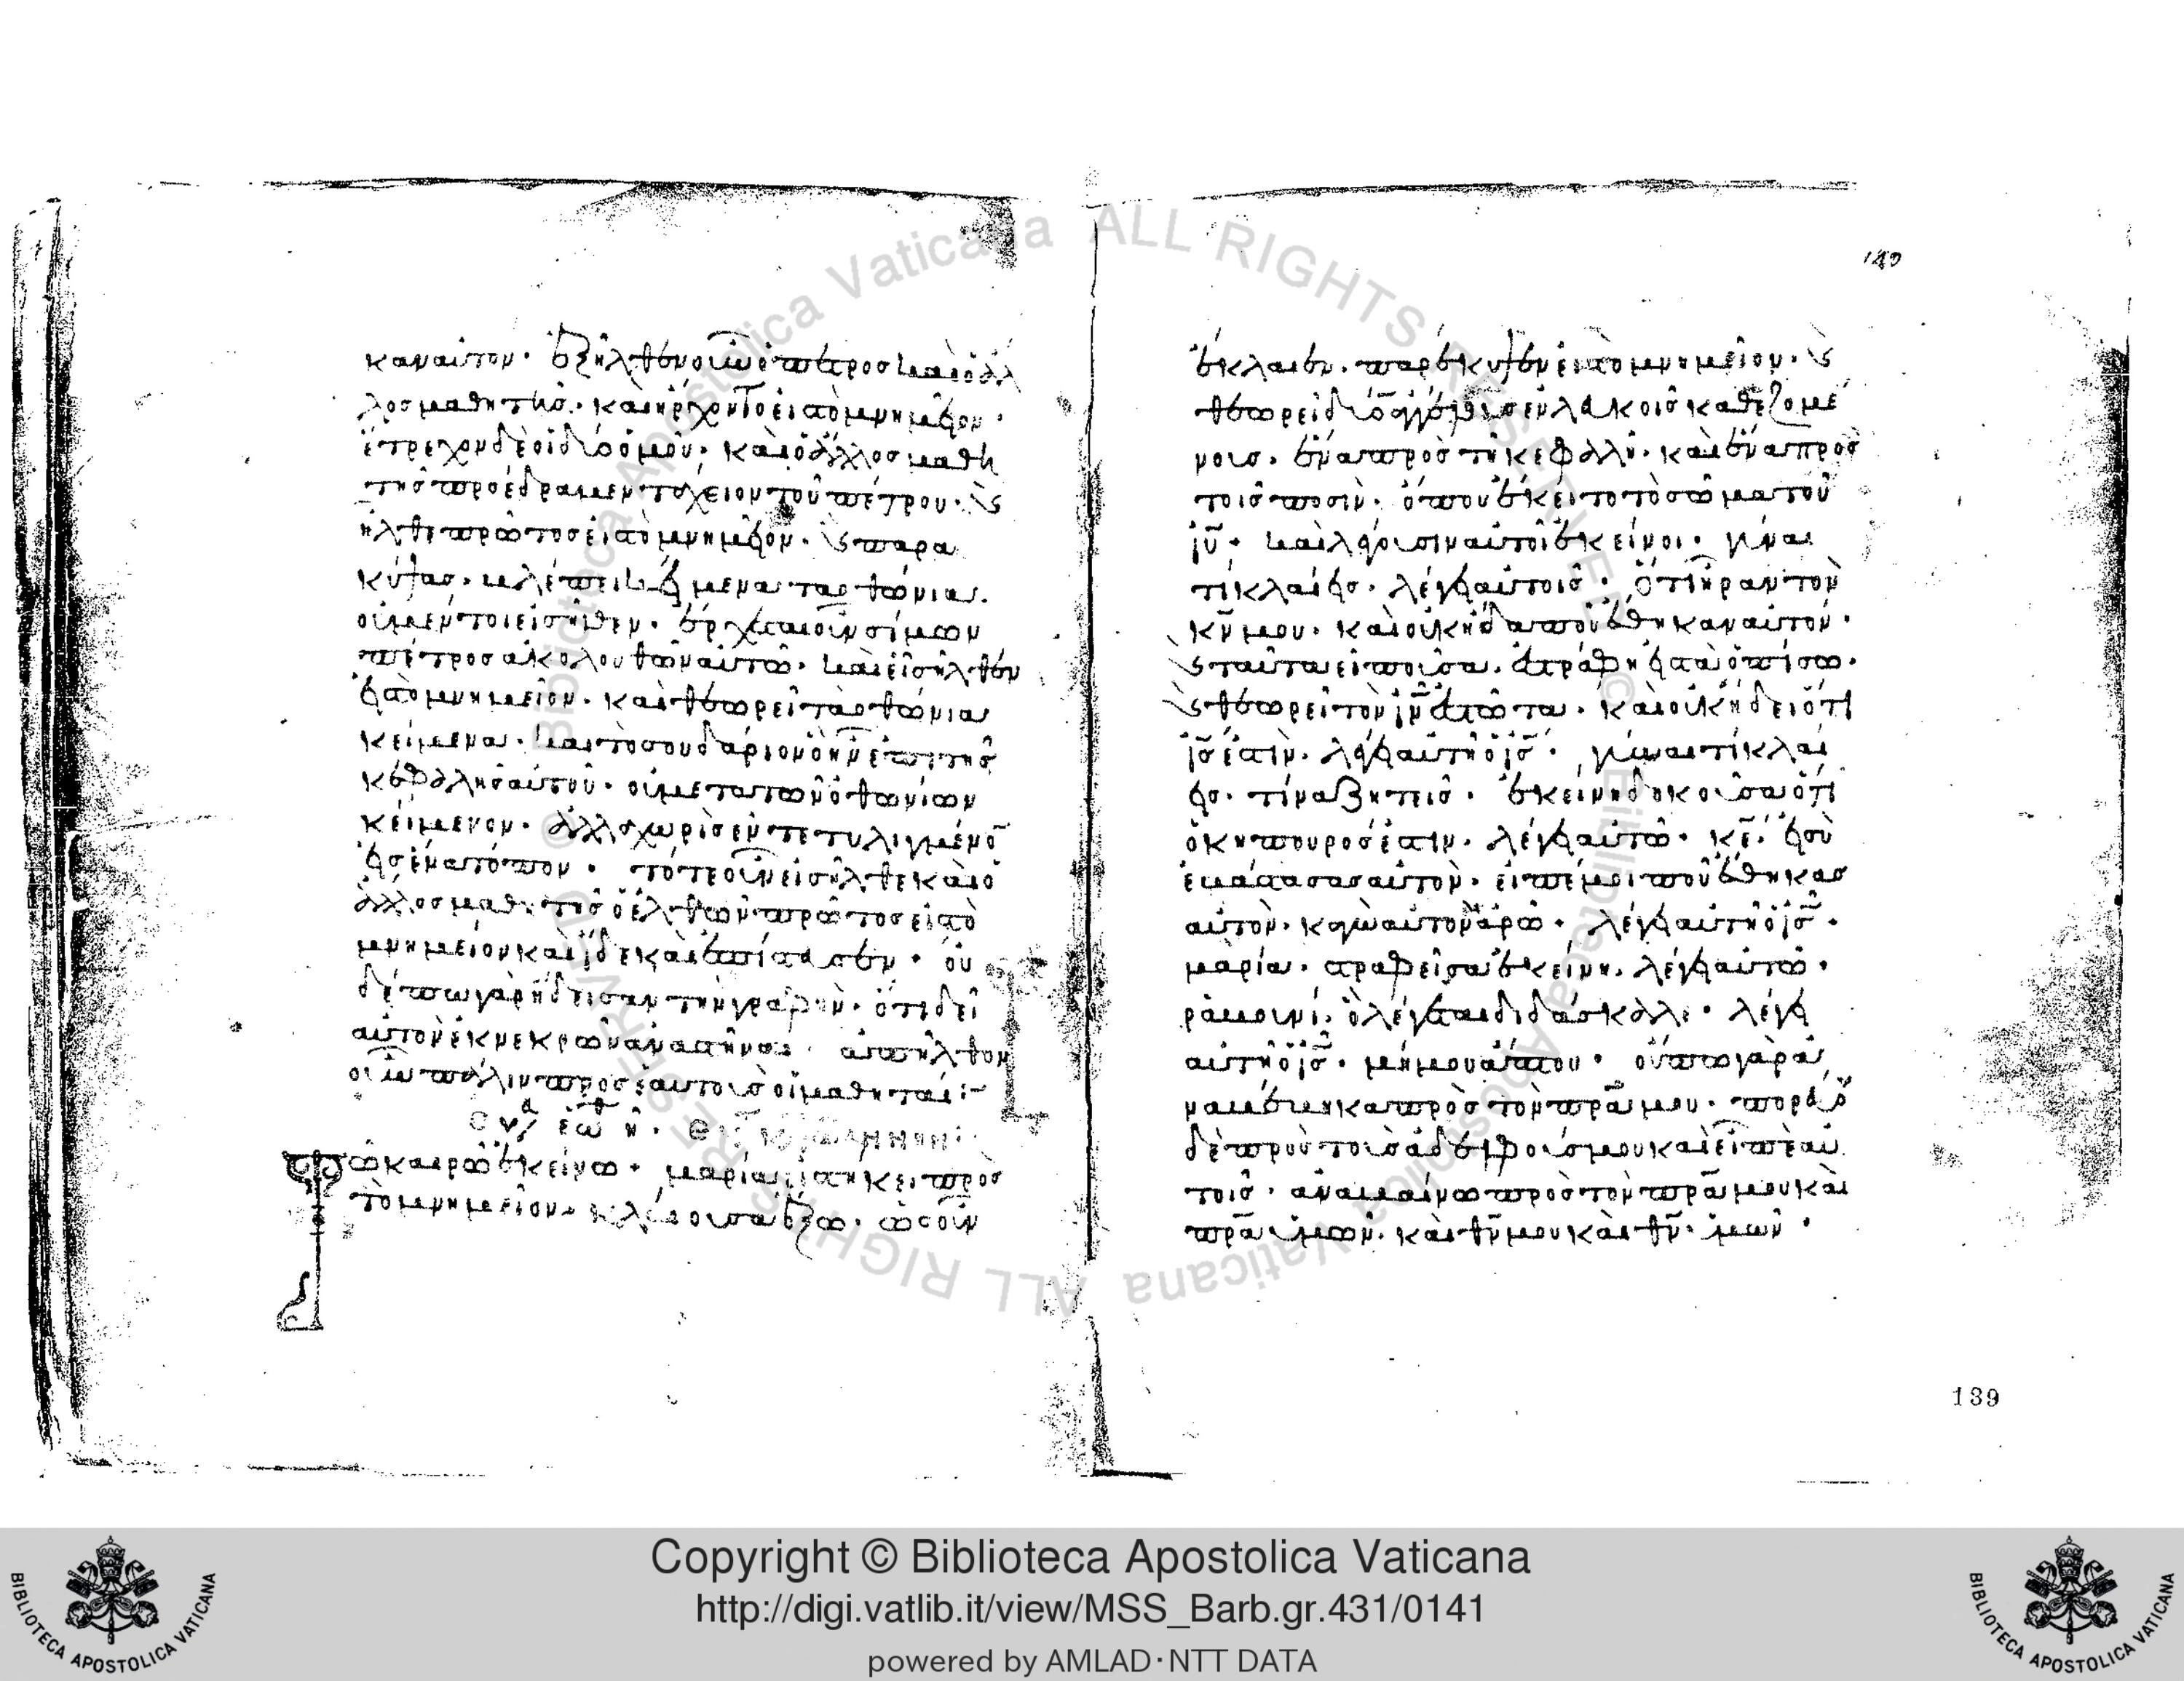 καν αὐτόν. ἐξῆλθεν οὖν ὁ πέτρος καὶ ὁ ἄλ
λος μαθητής. καὶ ἤρχοντο εἰς τὸ μνημεῖον.
ἔτρεχον δὲ οἱ δύο ὁμοῦ. καὶ ὁ ἄλλος μαθη
τὴς προέδραμεν τάχειον τοῦ πέτρου. καὶ
ἦλθε πρῶτος εἰς τὸ μνημεῖον. καὶ παρα
κύψας. βλέπει κείμενα τὰ ὀθόνια.
οὐ μέντοι εἰσῆλθεν. ἔρχεται οὖν σίμων
πέτρος ἀκολουθῶν αὐτῶ. καὶ εἰσῆλθεν
εἰς τὸ μνημεῖον. καὶ θεωρεῖ τὰ ὀθόνια
κείμενα. καὶ τὸ σουδάριον ὃ ἦν ἐπὶ τῆς
κεφαλῆς αὐτοῦ. οὐ μετὰ τῶν ὀθωνίων
κείμενον. ἀλλὰ χωρὶς ἐντετυλιγμένον
εἰς ἕνα τόπον. τότε οὖν εἰσῆλθε καὶ ὁ
ἄλλος μαθητὴς ὁ ἐλθὼν πρῶτος εἰς τὸ
μνημεῖον καὶ ἴδε καὶ ἐπίστευσεν. οὐ
δέπω γὰρ ἤδεισαν τὴν γραφὴν. ὅτι δεῖ
αὐτὸν ἐκ νεκρῶν ἀναστῆναι. ἀπῆλθον
οὖν πάλιν πρὸς ἑαυτοὺς οἱ μαθηταί:
ἑωθ η.
τῶ καιρῶ ἐκείνω. μαρία εἱστήκει πρὸς
τὸ μνημεῖον κλαίουσα ἔξω. ὡς οὖν
140
ἔκλαιεν. παρέκυψεν εἰς τὸ μνημεῖον. καὶ
θεωρεῖ δύο ἀγγέλους ἐν λευκοῖς καθεζομέ
νους. ἕνα πρὸς τῆ κεφαλῆ. καὶ ἕνα πρὸς
τοῖς ποσὶν. ὅπου ἔκειτο τὸ σῶμα τοῦ
ἰυ. καὶ λέγουσιν αὐτῆ ἐκεῖνοι. γύναι
τί κλαίεις. λέγει αὐτοῖς. ὅτι ἦραν τὸν
κν μου. καὶ οὐκ οἶδα ποῦ ἔθηκαν αὐτόν.
καὶ ταῦτα εἰποῦσα. ἐστράφη εἰς τὰ ὀπίσω.
καὶ θεωρεῖ τὸν ιν ἑστῶτα. καὶ οὐκ ἤδει ὅτι
ις ἐστὶν. λέγει αὐτῆ ὁ ις. γύναι τί κλαί
εις. τίνα ζητεῖς. ἐκείνη δοκοῦσα ὅτι
ὁ κηπουρός ἐστιν. λέγει αὐτῶ. κε. εἰ σὺ
ἐβάστασας αὐτὸν. εἰπέ μοι ποῦ ἔθηκας
αὐτὸν. κἀγὼ αὐτὸν ἀρῶ. λέγει αὐτῆ ὁ ις.
μαρία. στραφεῖσα ἐκείνη. λέγει αὐτῶ.
ραβουνί. ὃ λέγεται διδάσκαλε. λέγει
αὐτῆ ὁ ις. μή μου ἅπτου. οὔπω γὰρ ἀ
ναβέβηκα πρὸς τὸν πρα μου. πορεύου
δὲ πρὸς τοὺς ἀδελφούς μου καὶ εἰπὲ αὐ
τοῖς. ἀναβαίνω πρὸς τὸν πρα μου καὶ
πρα ὑμῶν. καὶ θν μου καὶ θν ὑμῶν.
139
Copyright © Biblioteca Apostolica Vaticana
http://digi.vatlib.it/view/MSS_Barb.gr.431/0141
powered by AMLAD·NTT DATA